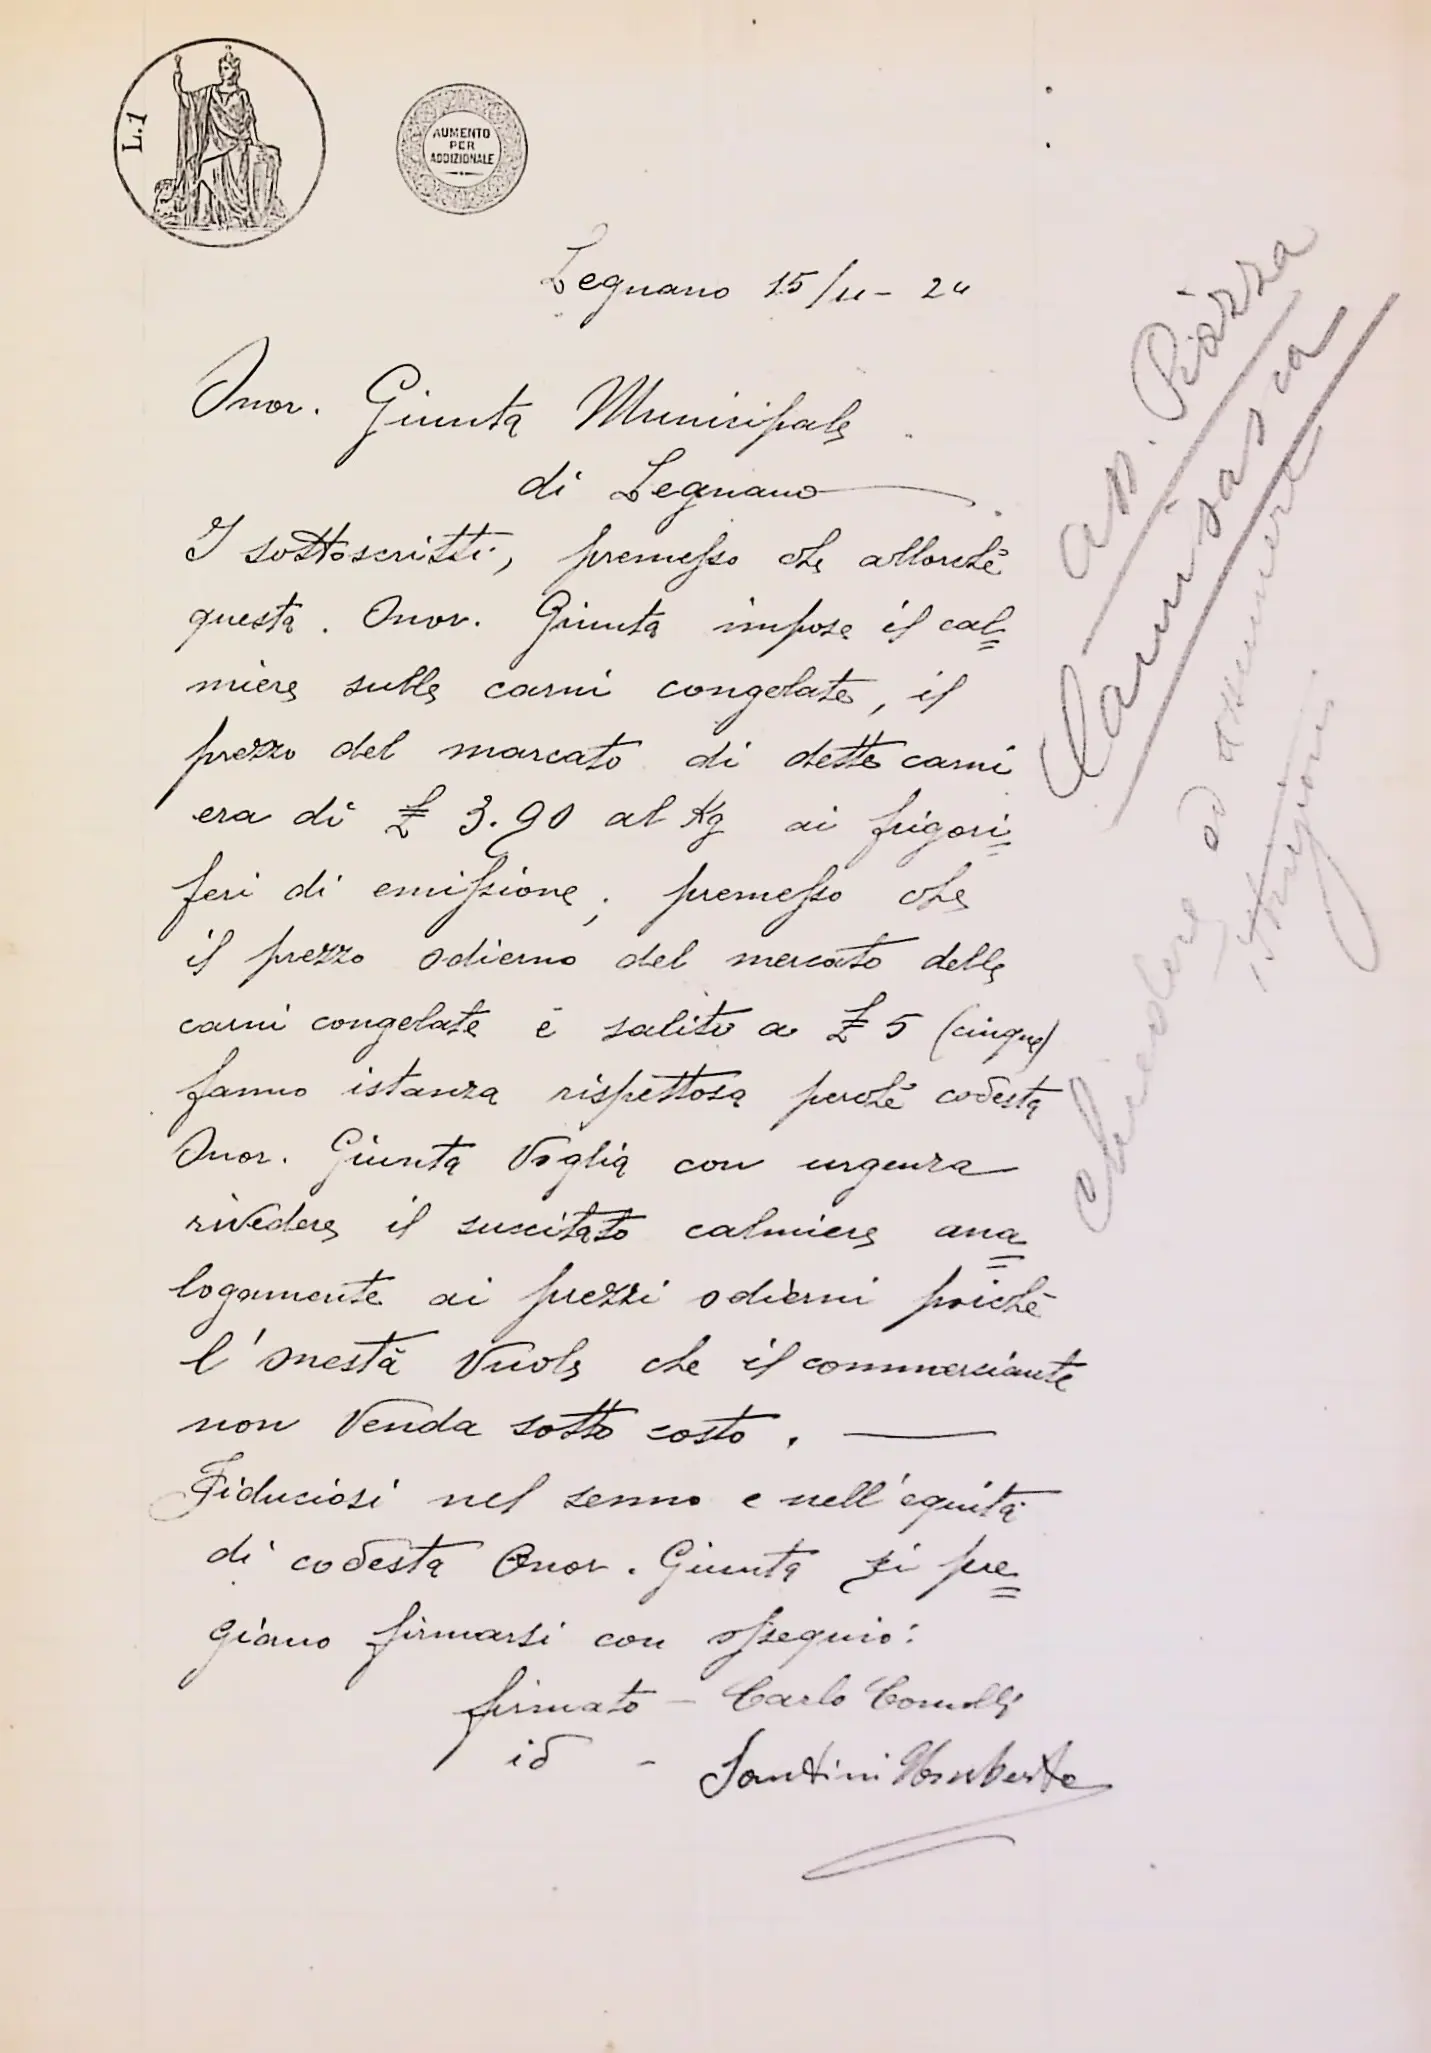 L.1
AUMENTO
PER
ADDIZIONALE
Legnano 15/11-24
Onor. Giunta Municipale
di Legnano
I sottoscritti, premesso che allorchè
questa. Onor. Giunta impose il cal=
miere sulle carni congelate, il
prezzo del marcato di dette carni
era di £ 3.90 al Kg ai frigori=
feri di emissione; premesso che
il prezzo odierno del mercato delle
carni congelate è salito a £ 5 (cinque)
fanno istanza rispettosa perchè codesta
Onor. Giunta voglia con urgenza
rivedere il succitato calmiere ana=
logamente ai prezzi odierni poichè
l'onestà vuole che il commerciante
non venda sotto costo.
Fiduciosi nel senno e nell'equità
di codesta Onor. Giunta si pre=
giano firmarsi con ossequio:
firmato - Carlo Comolli
id - Santini Umberto
Piazza
Camisasca
Chiedere ad